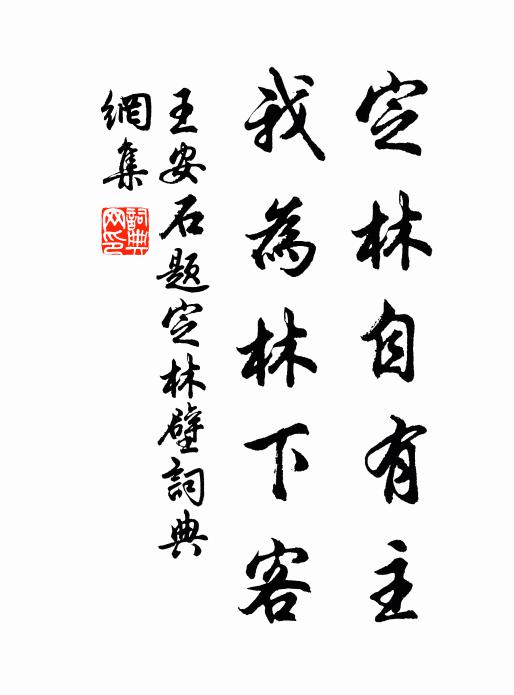 定林自有主
我為林下客
王安石題定林壁詞典
網集
詞典
网印